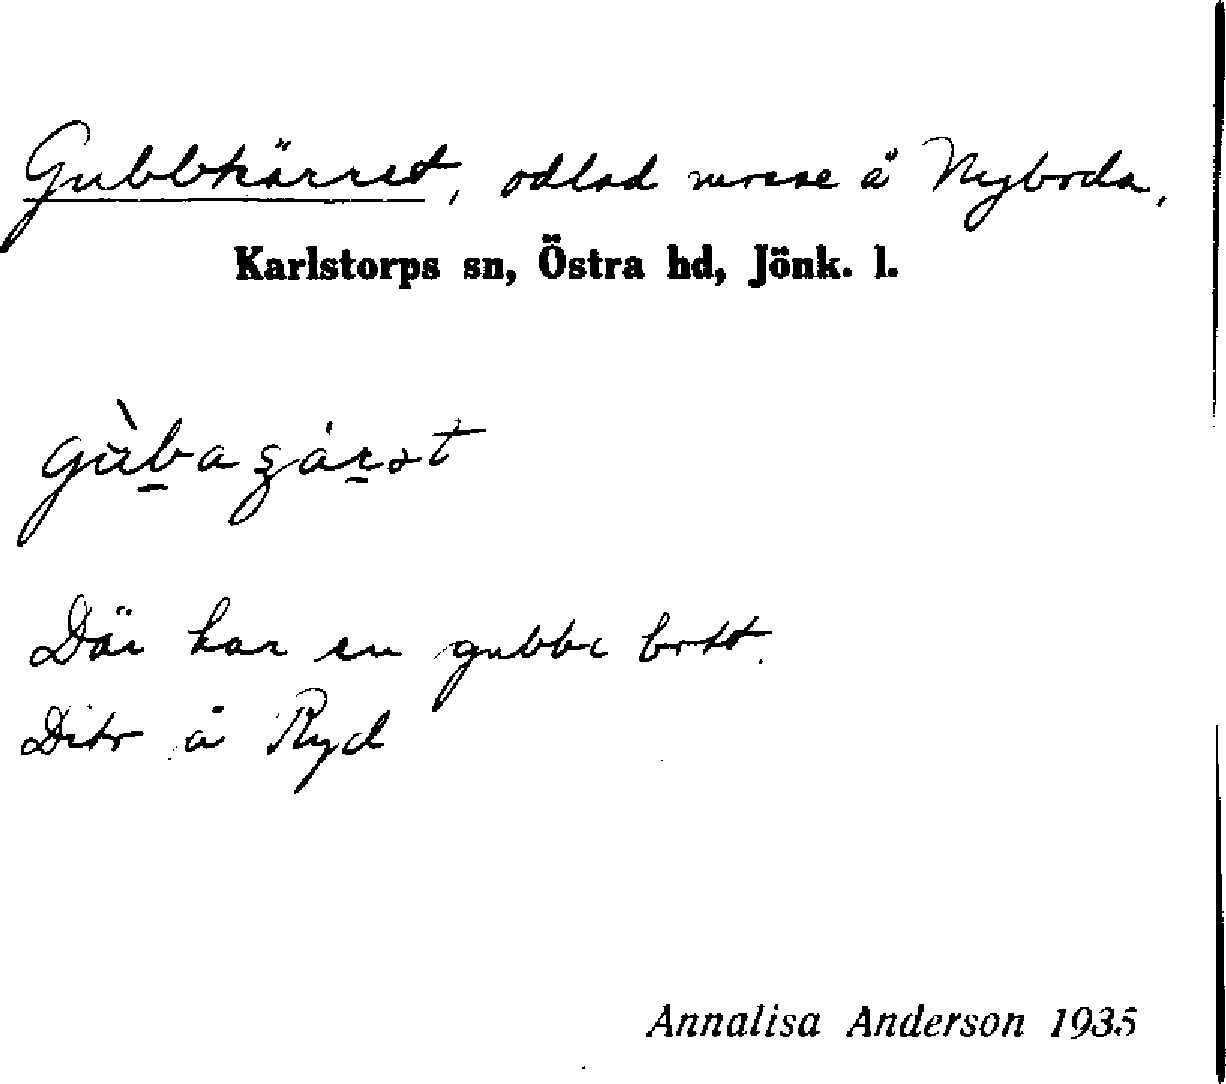 Gubbkärret, odlad mosse å Nyboda,
Karlstorps sn, Östra hd, Jönk. l.
Där har en gubbe bott.
Dito å Ryd
Annalisa Anderson 1935